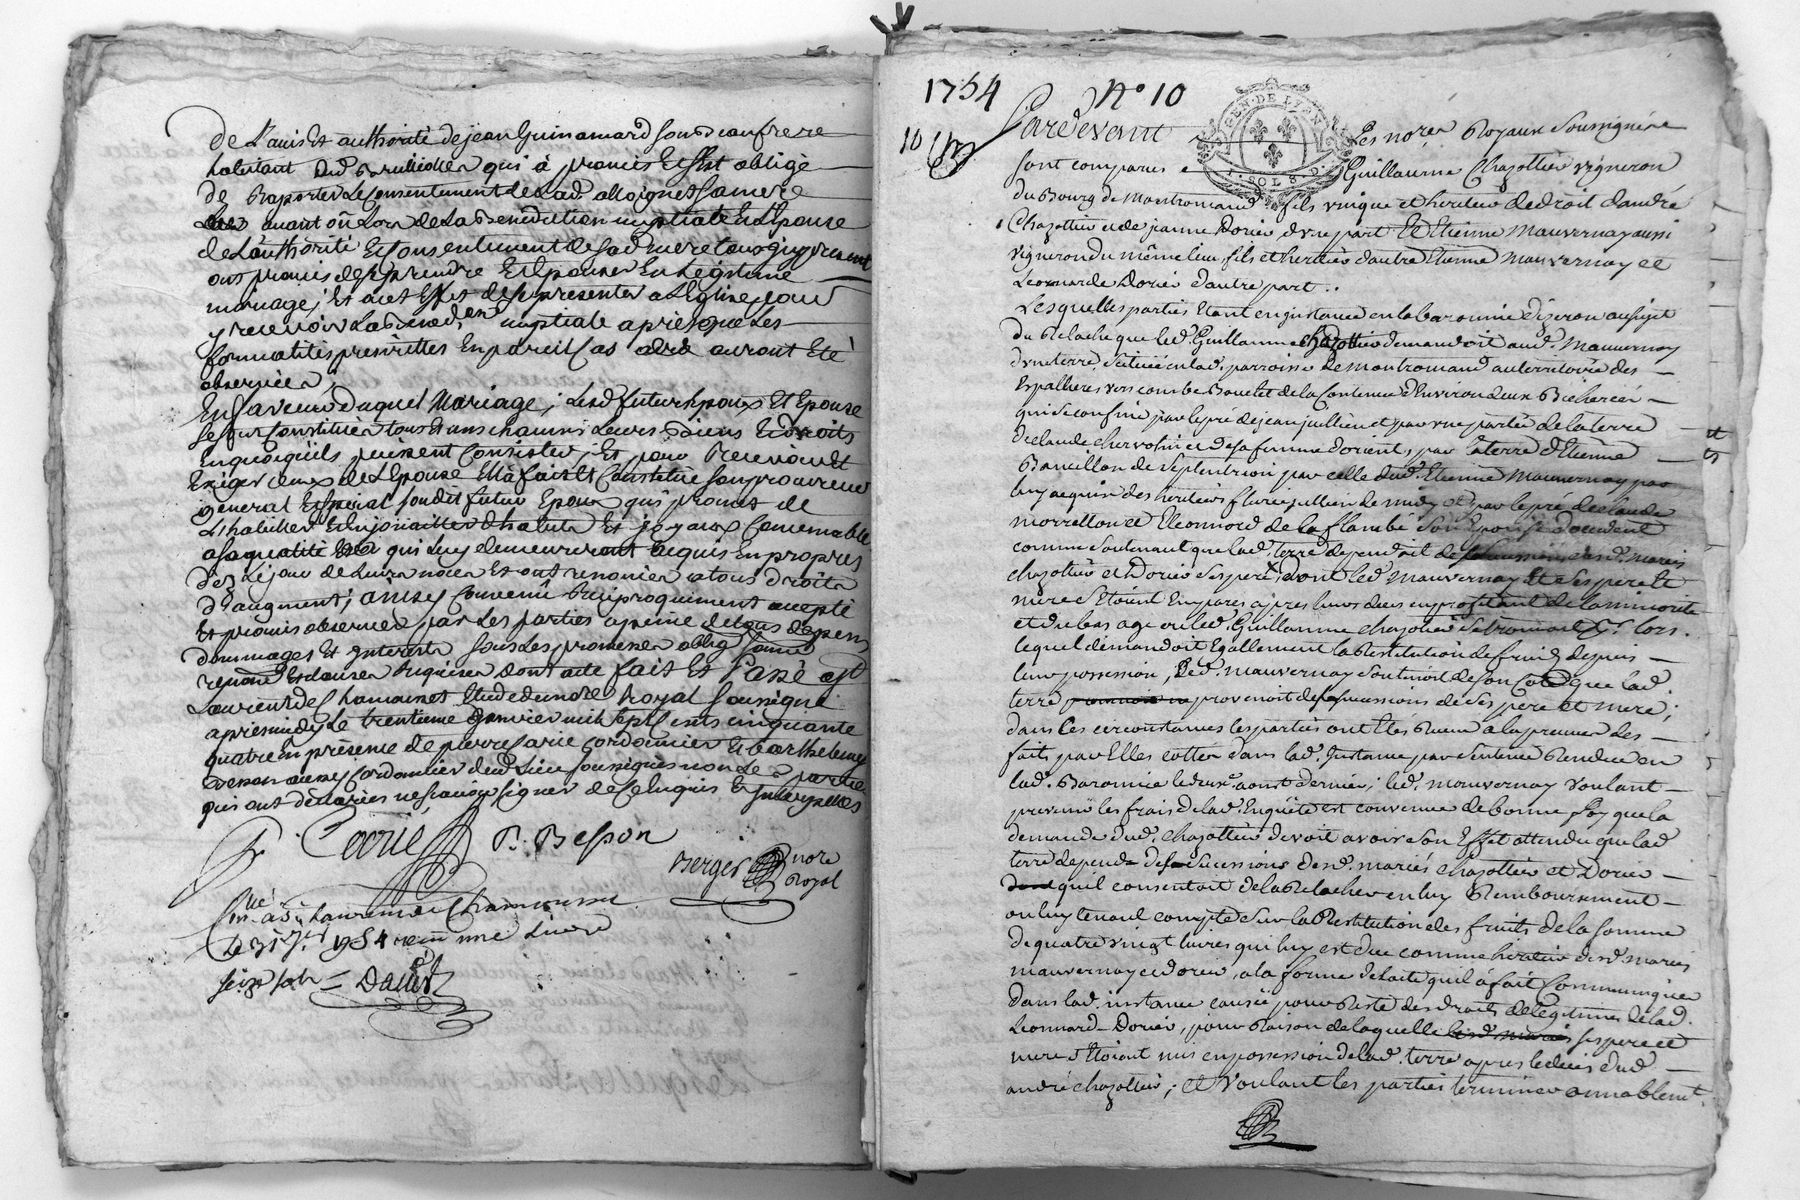 de L'avis Et authorité de jean Guinamard son beaufrere
habitant dud. Brullioles qui à promis Et s'Est obligé
de Raporter Le Consentement de Lad. alloignet sa mere
avant où Lors de La Benediction nuptiale Et L'Epouse
de L'authorité Et Consentement de sad. mere tous icy presents
ont promis de se prendre Et Epouser En Legitime
mariage, Et a cet Effet de se presenter a L'Eglise pour
y recevoir La Bened.on nuptiale apres que Les
formalités prescrittes En pareil Cas auront Eté
observées ;
En faveur duquel Mariage ; Lesd. futurs Epoux Et Epouse
se sont Constitués tous Et uns chacuns Leurs Biens Et droits
En quoi qu'ils puissent Consister ; Et pour Recevoir Et
Exiger ceux de L'Epouse Elle à fait Et Constitué son procureur
general Et special son dit futur Epoux qui promet de
L'habiller Et Enjoüailler d'habits Et joyaux Convenable
a sa qualité Et qui Luy demeureront acquis En propres
des Le jour de Leurs noces Et ont renoncés a tous droits
d'augment ; ainsy Convenû Reciproquement accepté
Et promis observer par Les parties a peine de tous depens
dommages Et interets sous Les promesses oblig.
renon.on Et clauses Requises dont acte fait Et Passé a St
Laurent de Chamousset Etude du no.re royal soussigné
apres midy Le trentieme janvier mil sept cents cinquante
quatre En presence de pierre Carie cordonnier Et barthelemy
Besson aussy Cordonnier dud. Lieu soussignés non Les parties
qui ont declarées ne sçavoir signer de ce Enquis Et interpellés
Carie B. Besson
Berger no.re
Royal
C.llé a St Laurent de Chamousset
Le 31 1754 reçu une Livre
seize sols
1754 N.o 10
10
Pardevant Les no.res Royaux soussignés
sont comparus Guillaume Chazottier vigneron
du Bourg de Montromand fils unique et heritier de droit d'andré
Chazottier et de jeanne Dorier d'une part Et Etienne Mauvernay aussi
vigneron du même lieu, fils et heritier d'autre Etienne Mauvernay et
Leonnarde Dorier d'autre part.
Lesquelles parties Etant en instance en la baronnie d'yzeron au sujet
du Relache que led. Guillaume Chazottier demandoit aud. Mauvernay
d'une terre, scituée en lad. parroisse de Montromand au territoire des
Espalheres vers combe Bouclet de la Contenue d'Environ deux Bicherées
qui se confine par le pré de jean jullien et par une partie de la terre
de claude chervolin et de sa femme d'orient, par la terre d'Etienne
Bancillon de septentrion par celle dud. Etienne Mauvernay par
luy acquise des heritiers fleury jullien de midy et par le pré de claude
morretton et Eleonnord de la flambe son Epouse d'occident
comme soutenant que lad. terre dependoit de la succession desd. mariés
chazottier et Dorier ses pere, dont led. Mauvernay Et ses pere Et
mere s'Etoient Emparés apres leurs deces en profitant de la minorité
et du bas age ou led. Guillaume chazottier se trouvoit p.r lors.
lequel demandoit Egallement la Restitution des fruits depuis
leur possession, Led. mauvernay soutenoit de son coté que lad.
terre provenoit de la successions de ses pere et mere ;
dans ces circonstances les parties ont Etés Receu a la preuve des
faits par Elles cottés dans lad. Instance par sentence Rendue en
lad. Baronnie le deux aoust dernier ; led. mauvernay voulant
prevenir les frais de lad. Enquête est convenue de bonne foy que la
demande dud. chazottier devoit avoir son Effet attendu que lad.
terre depend de la Succession desd. mariés chazottier et Dorier
qu'il consentoit de la Relacher en luy Remboursement
ou luy tenant compte sur la Restitution des fruits de la somme
de quatre vingt livres qui luy est due comme heritier desd. mariés
mauvernay et dorier, a la forme de l'acte qu'il à fait Communiquer
dans lad. instance causée pour Reste des droits de legitimes de lad.
Leonnard Dorier, pour Raison de laquelle ses pere et
mere s'Etoient mis en possession de lad. terre apres le deces dud.
andré chazottier ; et voulant les parties terminer amiablement